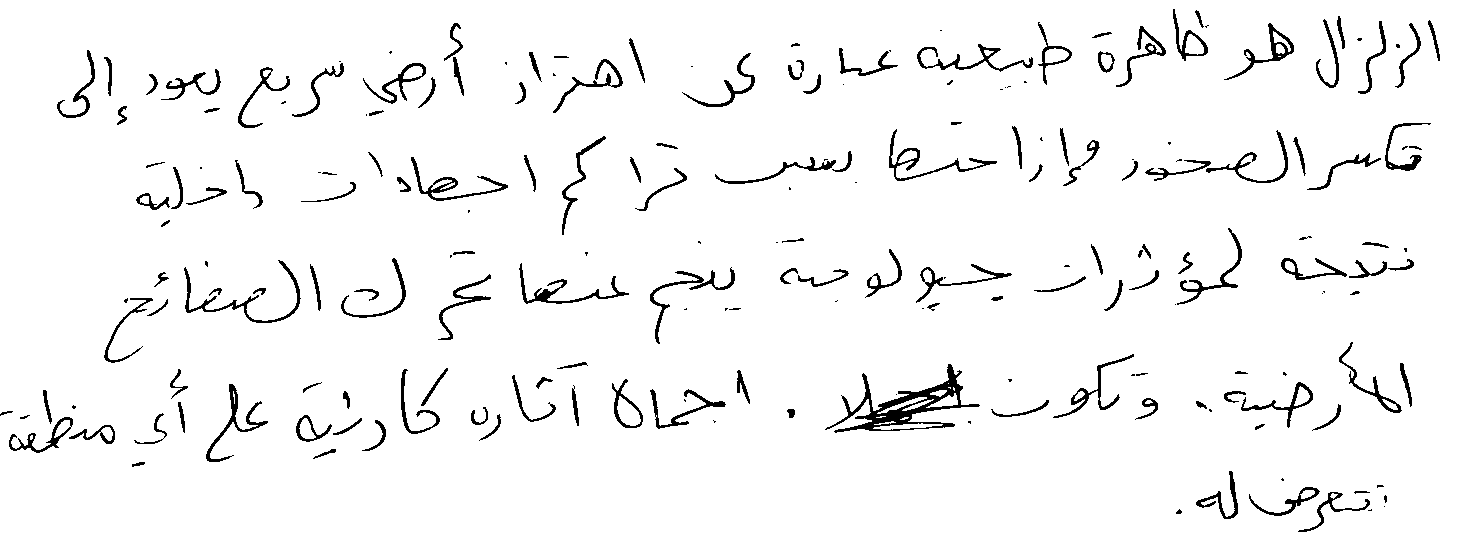 الزلزال هو ظاهرة طبيعية عبارة عن اهتزاز أرضي سريع يعود إلى
تكسر الصخور وإزاحتها بسبب تراكم اجهادات داخلية
نتيجة لمؤثرات جيولوجية ينجم عنها تحرك الصفائح
الأرضية. وتكون . اجمالا آثاره كارثية على أي منطقة
تتعرض له.